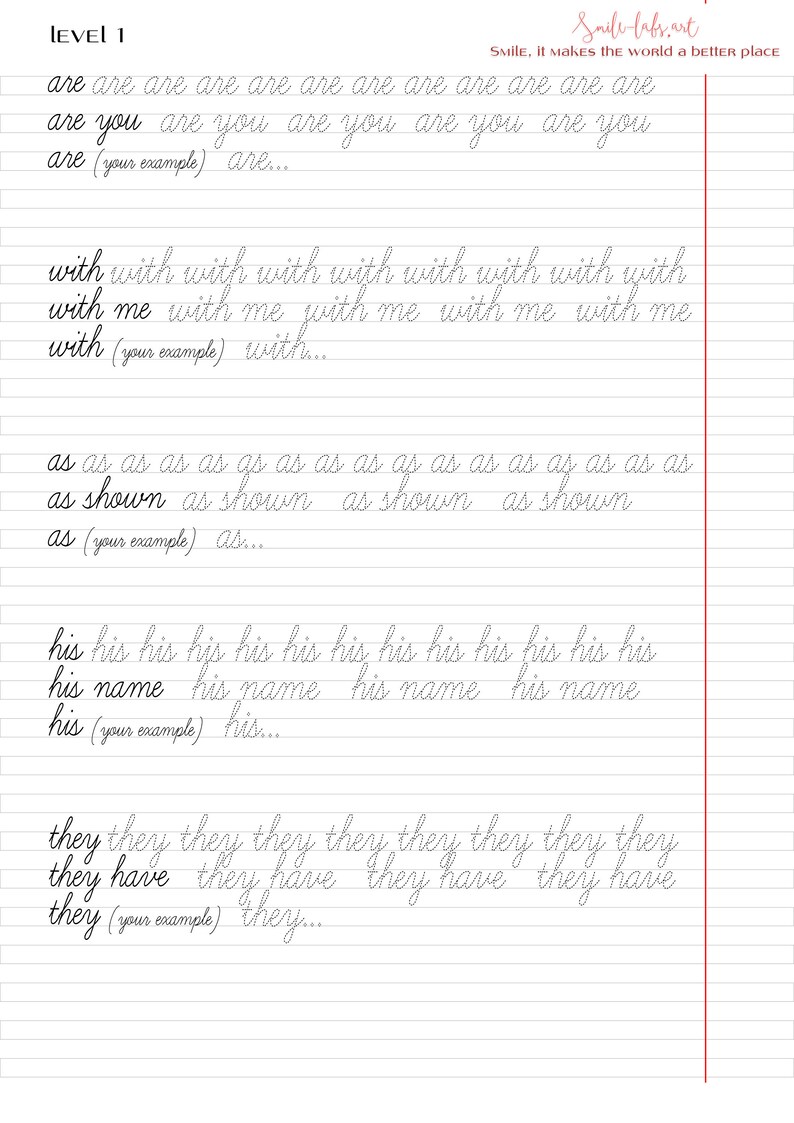 Level 1
Smile-labs.art
Smile, it makes the world a better place
are are are are are are are are are are are are
are you are you are you are you are you
are (your example) are...
with with with with with with with with with
with me with me with me with me with me
with (your example) with...
as as as as as as as as as as as as as as as as as
as shown as shown as shown as shown
as (your example) as...
his his his his his his his his his his his his his
his name his name his name his name
his (your example) his...
they they they they they they they they they
they have they have they have they have
they (your example) they...